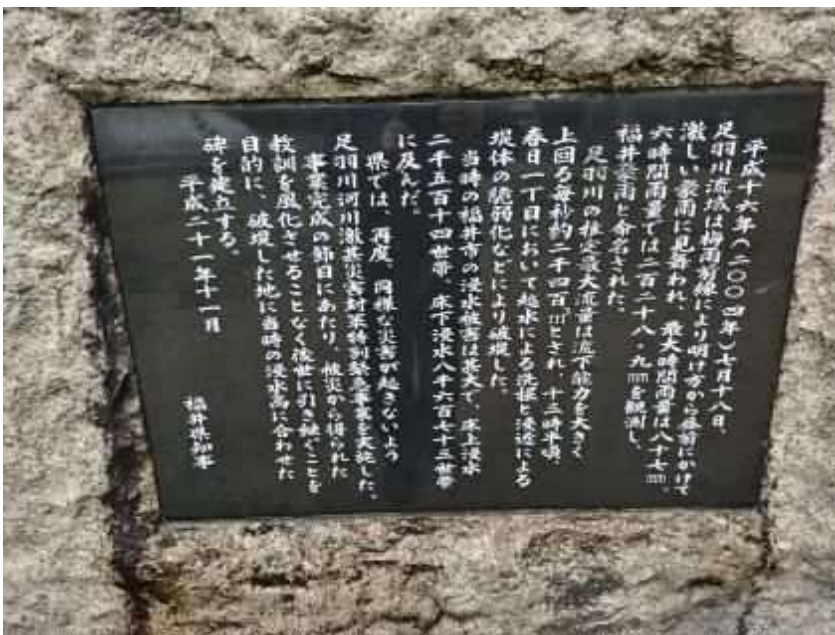 平成十六年(二〇〇四年)七月十八日、
足羽川流域は梅雨前線により明け方から昼前にかけて
激しい豪雨に見舞われ、最大時間雨量は八十七㎜、
六時間雨量では二百二十八・九㎜を観測し、
福井豪雨と命名された。
足羽川の推定最大流量は流下能力を大きく
上回る毎秒約二千四百㎥とされ、十三時半頃、
春日一丁目において越水による洗掘と浸透による
堤体の脆弱化などにより破堤した。
当時の福井市の浸水被害は甚大で、床上浸水
二千五百十四世帯、床下浸水八千六百七十三世帯
に及んだ。
県では、再度、同様な災害が起きないよう
足羽川河川激甚災害対策特別緊急事業を実施した。
事業完成の節目にあたり、被災から得られた
教訓を風化させることなく後世に引き継ぐことを
目的に、破堤した地に当時の浸水高に合わせた
碑を建立する。
平成二十一年十一月
福井県知事